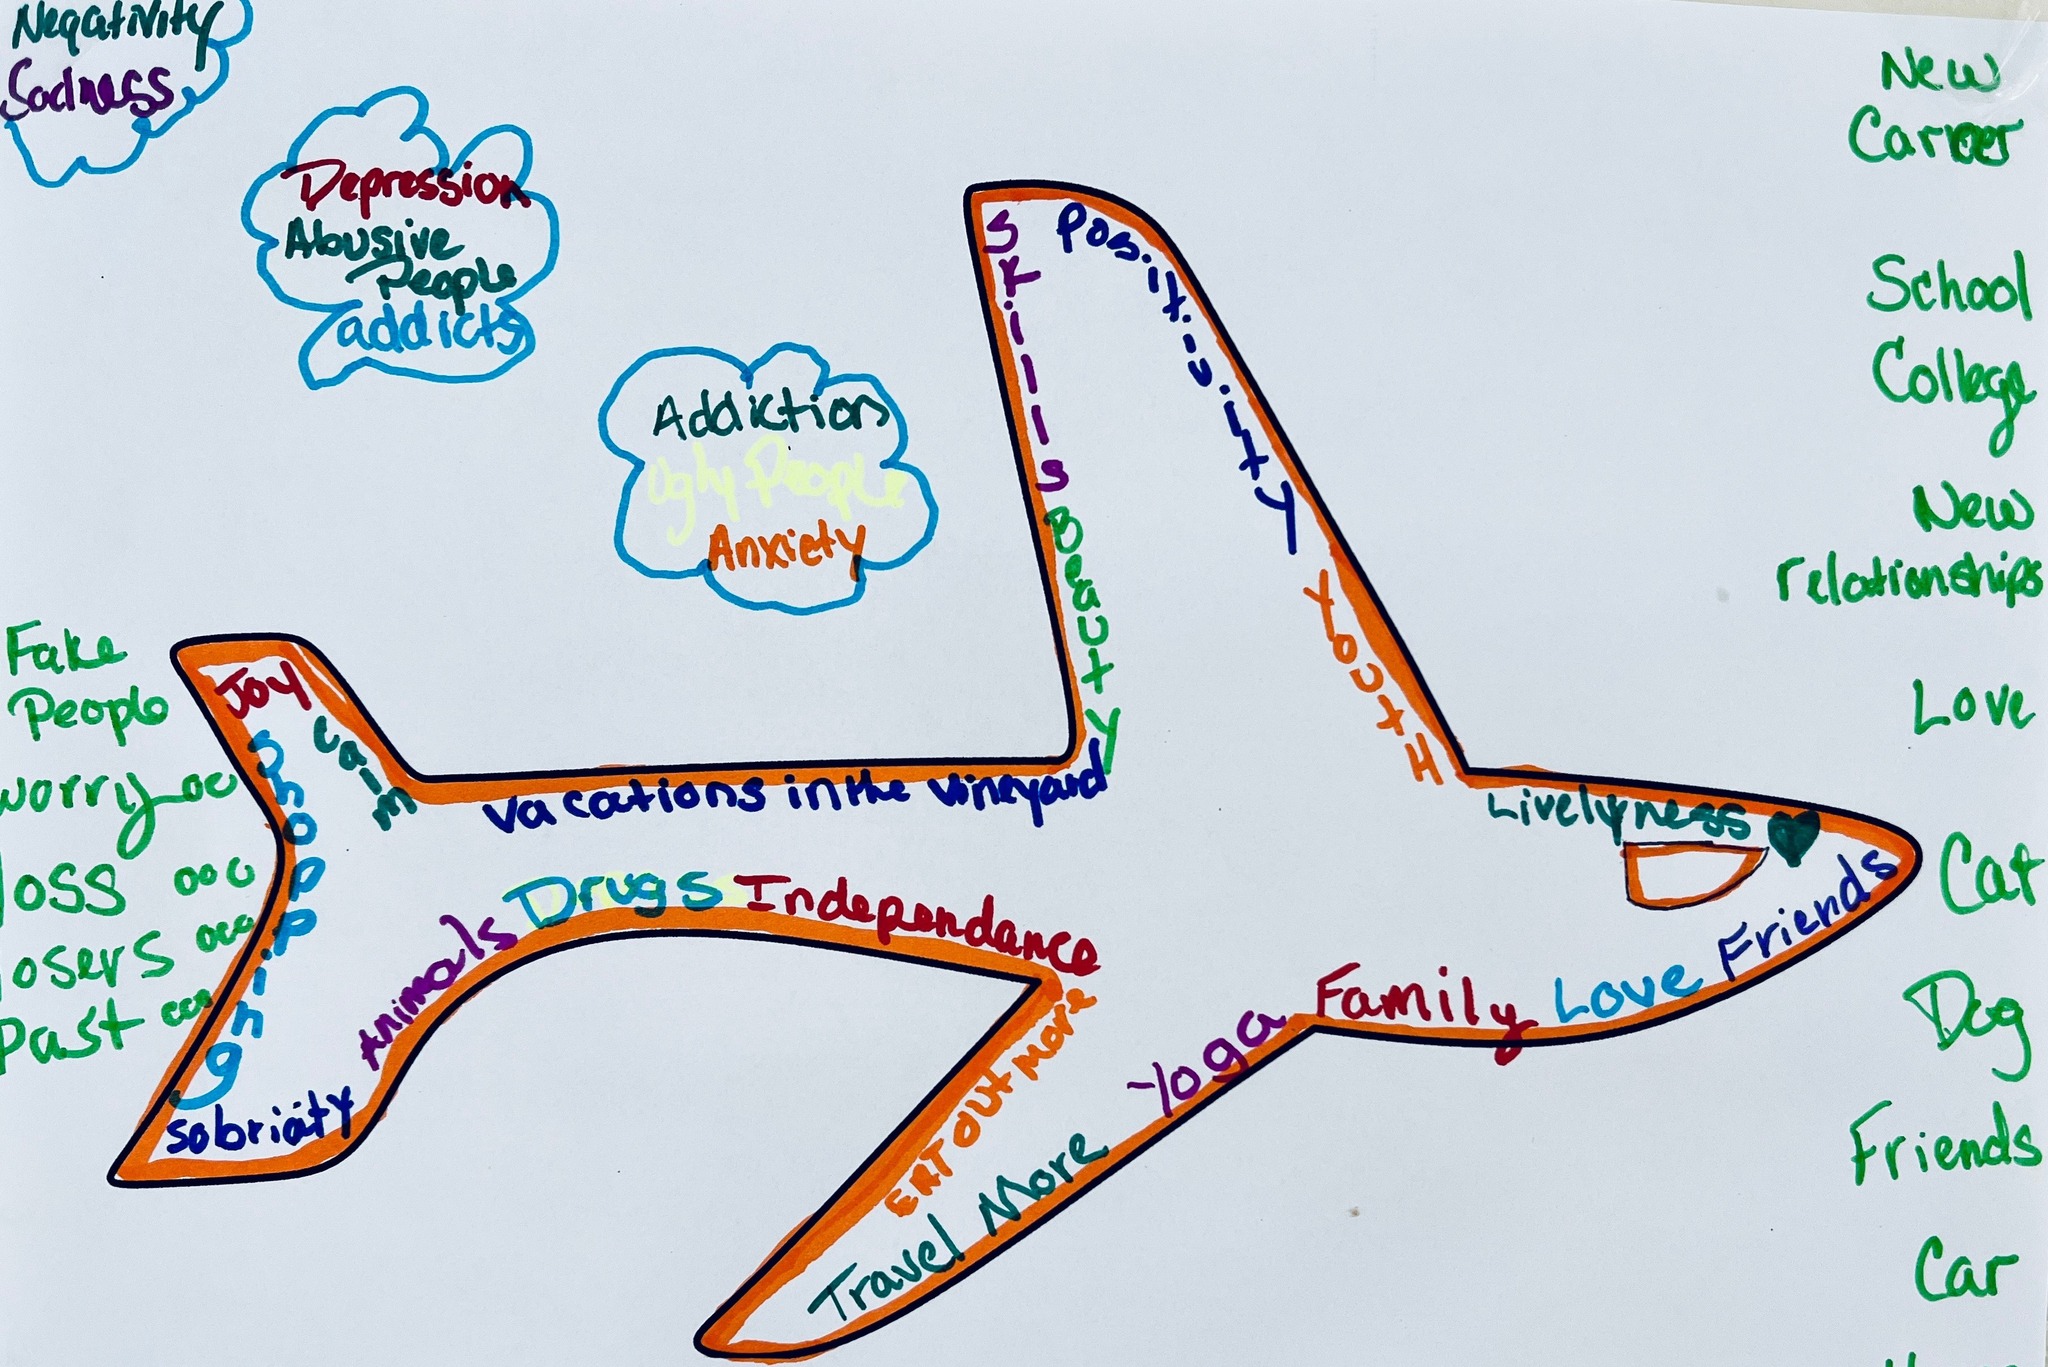 Negativity
Sadness
Depression
Abusive
People
addicts
Addiction
Ugly People
Anxiety
Fake
People
worry
loss
losers
Past
Joy
Calm
Shopping
sobriaty
Animals
Drugs
Independance
vacations in the vineyard
Skills
Beauty
Positivity
Youth
Livelyness
Friends
Love
Family
Yoga
EAT OUT MORE
Travel More
New
Career
School
College
New
relationships
Love
Cat
Dog
Friends
Car